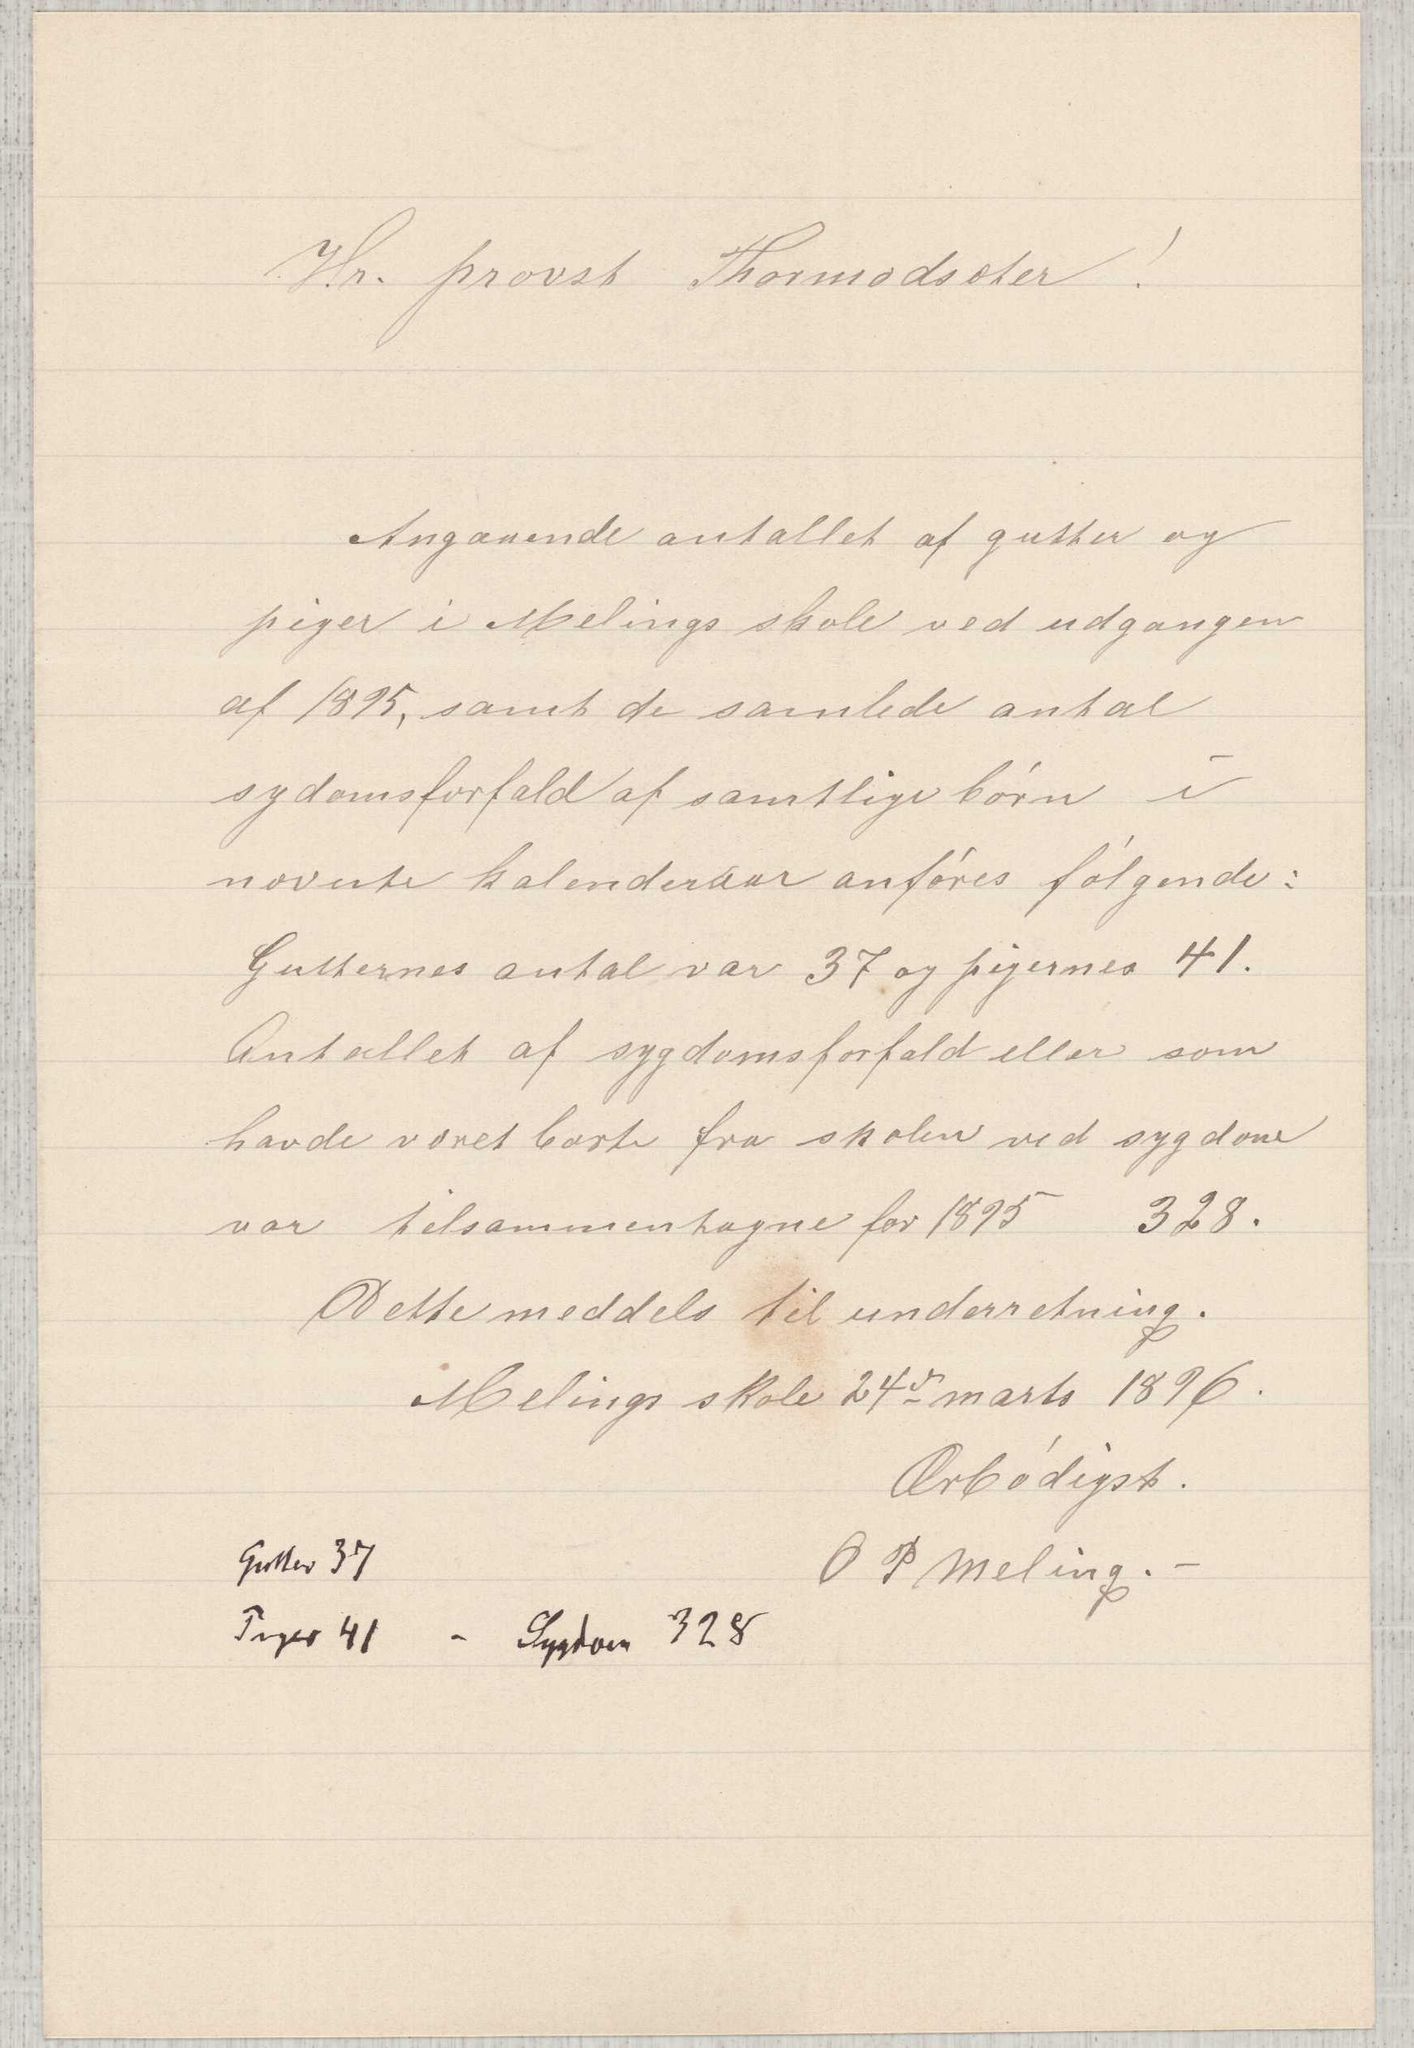 Hr. provst Thormodsæter!
Angaaende antallet af gutter og
piger i Melings skole ved udgangen
af 1895, samt de samlede antal
sydomsforfald af samtlige börn i
nævnte kalenderaar anföres fölgende:
Gutternes antal var 37 og pigernes 41.
Antallet af sygdomsforfald eller som
havde været borte fra skolen ved sygdom
var tilsammentagne for 1895 328.
Dette meddels til underretning.
Melings skole 24de marts 1896.
Ærbödigst.
O P Meling. -
Gutter 37
Piger 41 - Sygdom 328